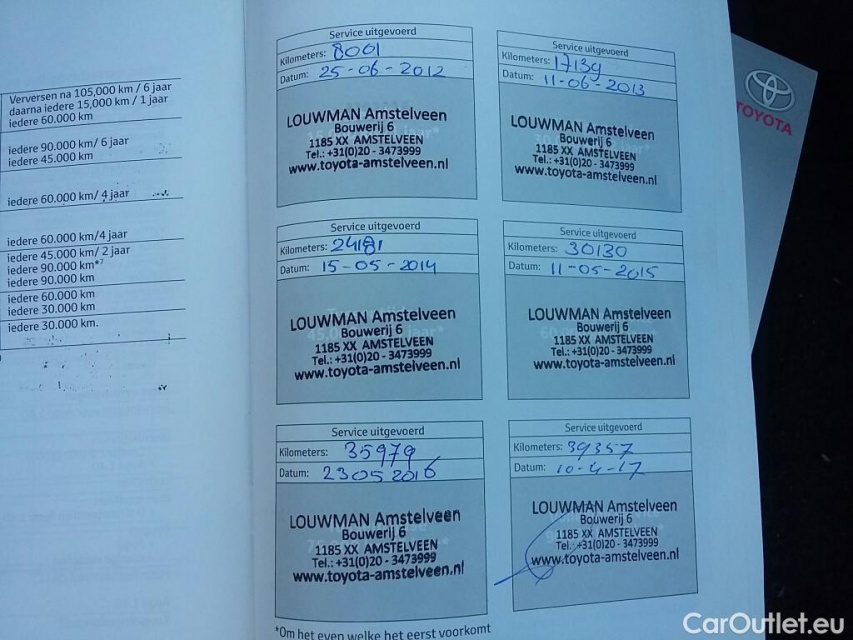 Verversen na 105,000 km / 6 jaar
daarna iedere 15,000 km / 1 jaar
iedere 60.000 km
iedere 90.000 km/ 6 jaar
iedere 45.000 km
iedere 60.000 km/ 4 jaar
iedere 60.000 km/4 jaar
iedere 45.000 km/ 2 jaar
iedere 90.000 km*7
iedere 90.000 km
iedere 60.000 km
iedere 30.000 km
iedere 30.000 km.
Service uitgevoerd
Kilometers: 8001
Datum: 25-06-2012
LOUWMAN Amstelveen
Bouwerij 6
1185 XX AMSTELVEEN
Tel.: +31(0)20 - 3473999
www.toyota-amstelveen.nl
Service uitgevoerd
Kilometers: 17139
Datum: 11-06-2013
LOUWMAN Amstelveen
Bouwerij 6
1185 XX AMSTELVEEN
Tel.: +31(0)20 - 3473999
www.toyota-amstelveen.nl
Service uitgevoerd
Kilometers: 24181
Datum: 15-05-2014
LOUWMAN Amstelveen
Bouwerij 6
1185 XX AMSTELVEEN
Tel.: +31(0)20 - 3473999
www.toyota-amstelveen.nl
Service uitgevoerd
Kilometers: 30130
Datum: 11-05-2015
LOUWMAN Amstelveen
Bouwerij 6
1185 XX AMSTELVEEN
Tel.: +31(0)20 - 3473999
www.toyota-amstelveen.nl
Service uitgevoerd
Kilometers: 35979
Datum: 23 05 2016
LOUWMAN Amstelveen
Bouwerij 6
1185 XX AMSTELVEEN
Tel.: +31(0)20 - 3473999
www.toyota-amstelveen.nl
Service uitgevoerd
Kilometers: 39357
Datum: 10-4-17
LOUWMAN Amstelveen
Bouwerij 6
1185 XX AMSTELVEEN
Tel.: +31(0)20 - 3473999
www.toyota-amstelveen.nl
*Om het even welke het eerst voorkomt
TOYOTA
CarOutlet.eu